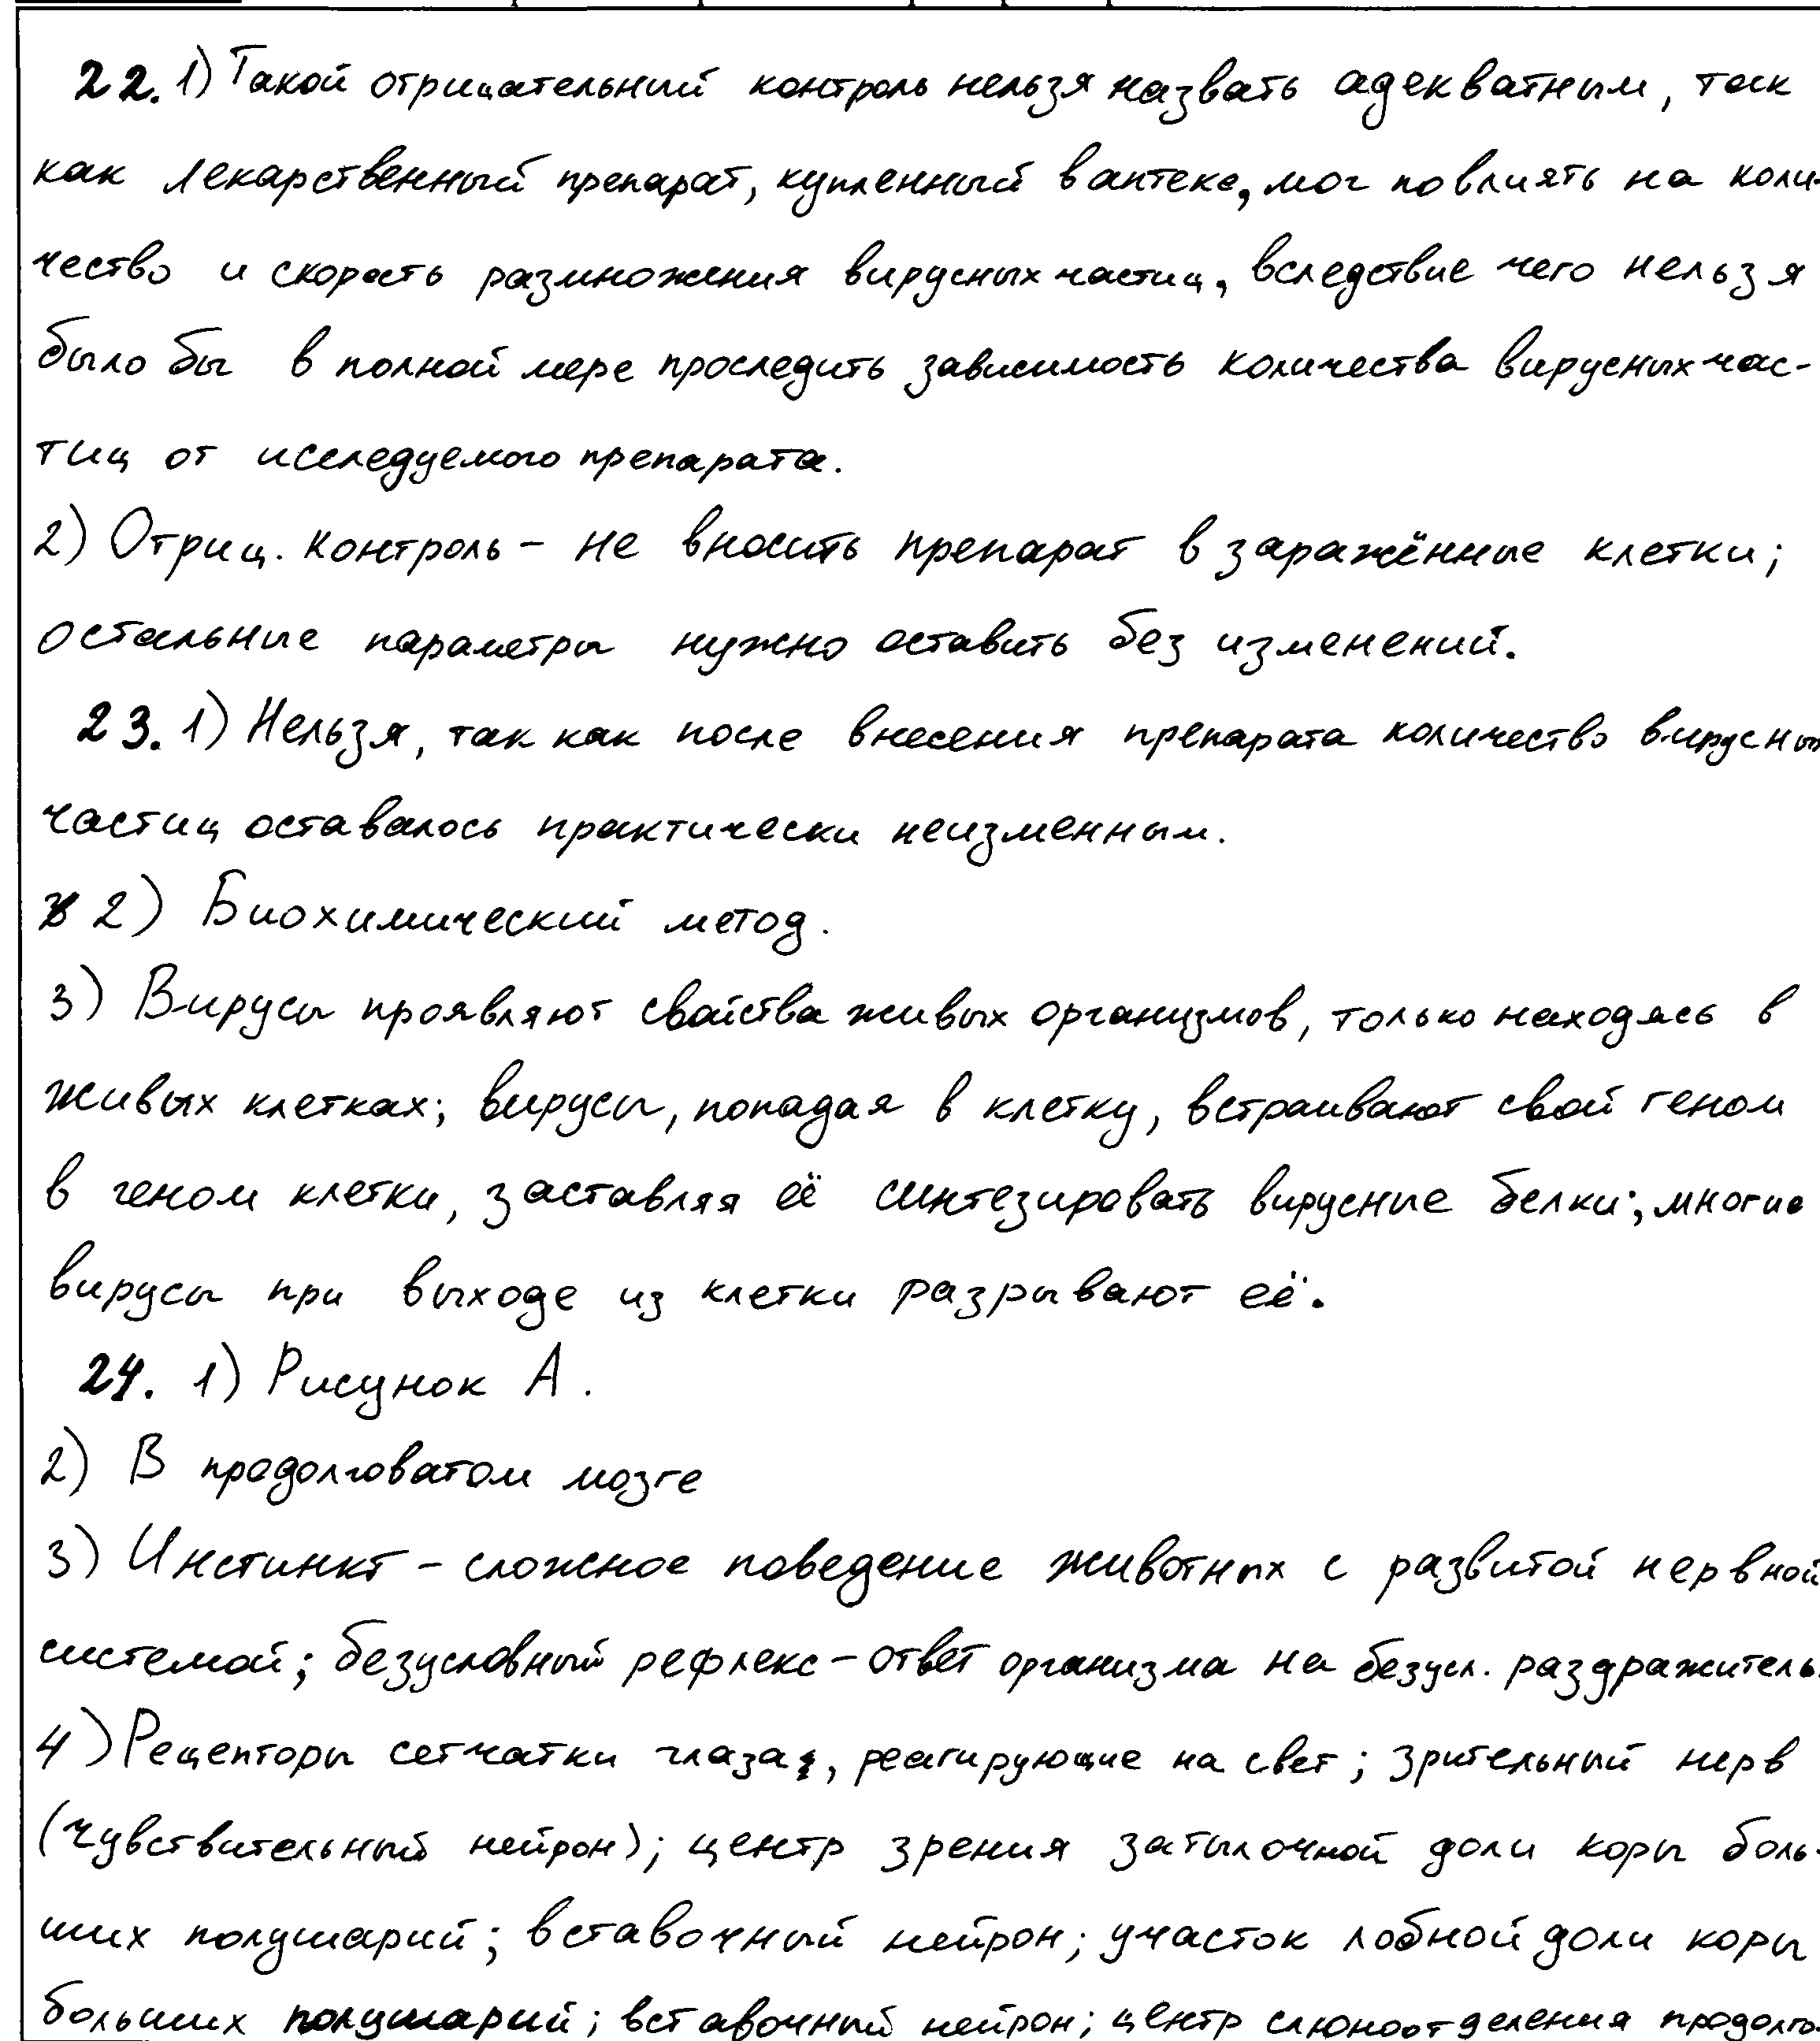 22. 1) Такой отрицательный контроль нельзя назвать адекватным, так
как лекарственный препарат, купленный в аптеке, мог повлиять на коли-
чество и скорость размножения вирусных частиц, вследствие чего нельзя
было бы в полной мере проследить зависимость количества вирусных час-
тиц от исследуемого препарата.
2) Отриц. контроль - не вносить препарат в заражённые клетки;
остальные параметры нужно оставить без изменений.
23. 1) Нельзя, так как после внесения препарата количество вирусных
частиц оставалось практически неизменным.
2) Биохимический метод.
3) Вирусы проявляют свойства живых организмов, только находясь в
живых клетках; вирусы, попадая в клетку, встраивают свой геном
в геном клетки, заставляя её синтезировать вирусные белки; многие
вирусы при выходе из клетки разрывают её.
24. 1) Рисунок А.
2) В продолговатом мозге
3) Инстинкт - сложное поведение животных с развитой нервной
системой; безусловный рефлекс - ответ организма на безусл. раздражитель.
4) Рецепторы сетчатки глаза, реагирующие на свет; зрительный нерв
(чувствительный нейрон); центр зрения затылочной доли коры боль-
ших полушарий; вставочный нейрон; участок лобной доли коры
больших полушарий; вставочный нейрон; центр слюноотделения продолго